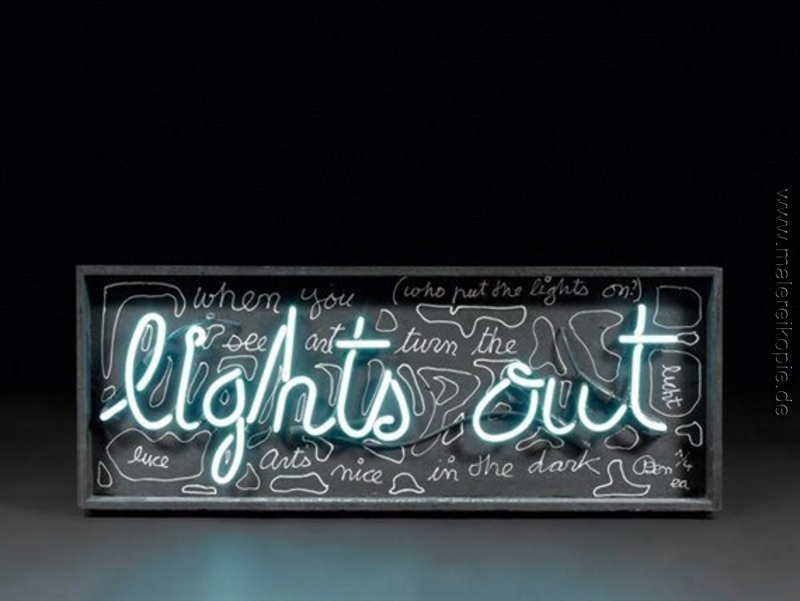 when you (who put the lights on?)
see art turn the
lights out
licht
luce
art's nice in the dark
Ben 1/4
ea
www.malereikopie.de